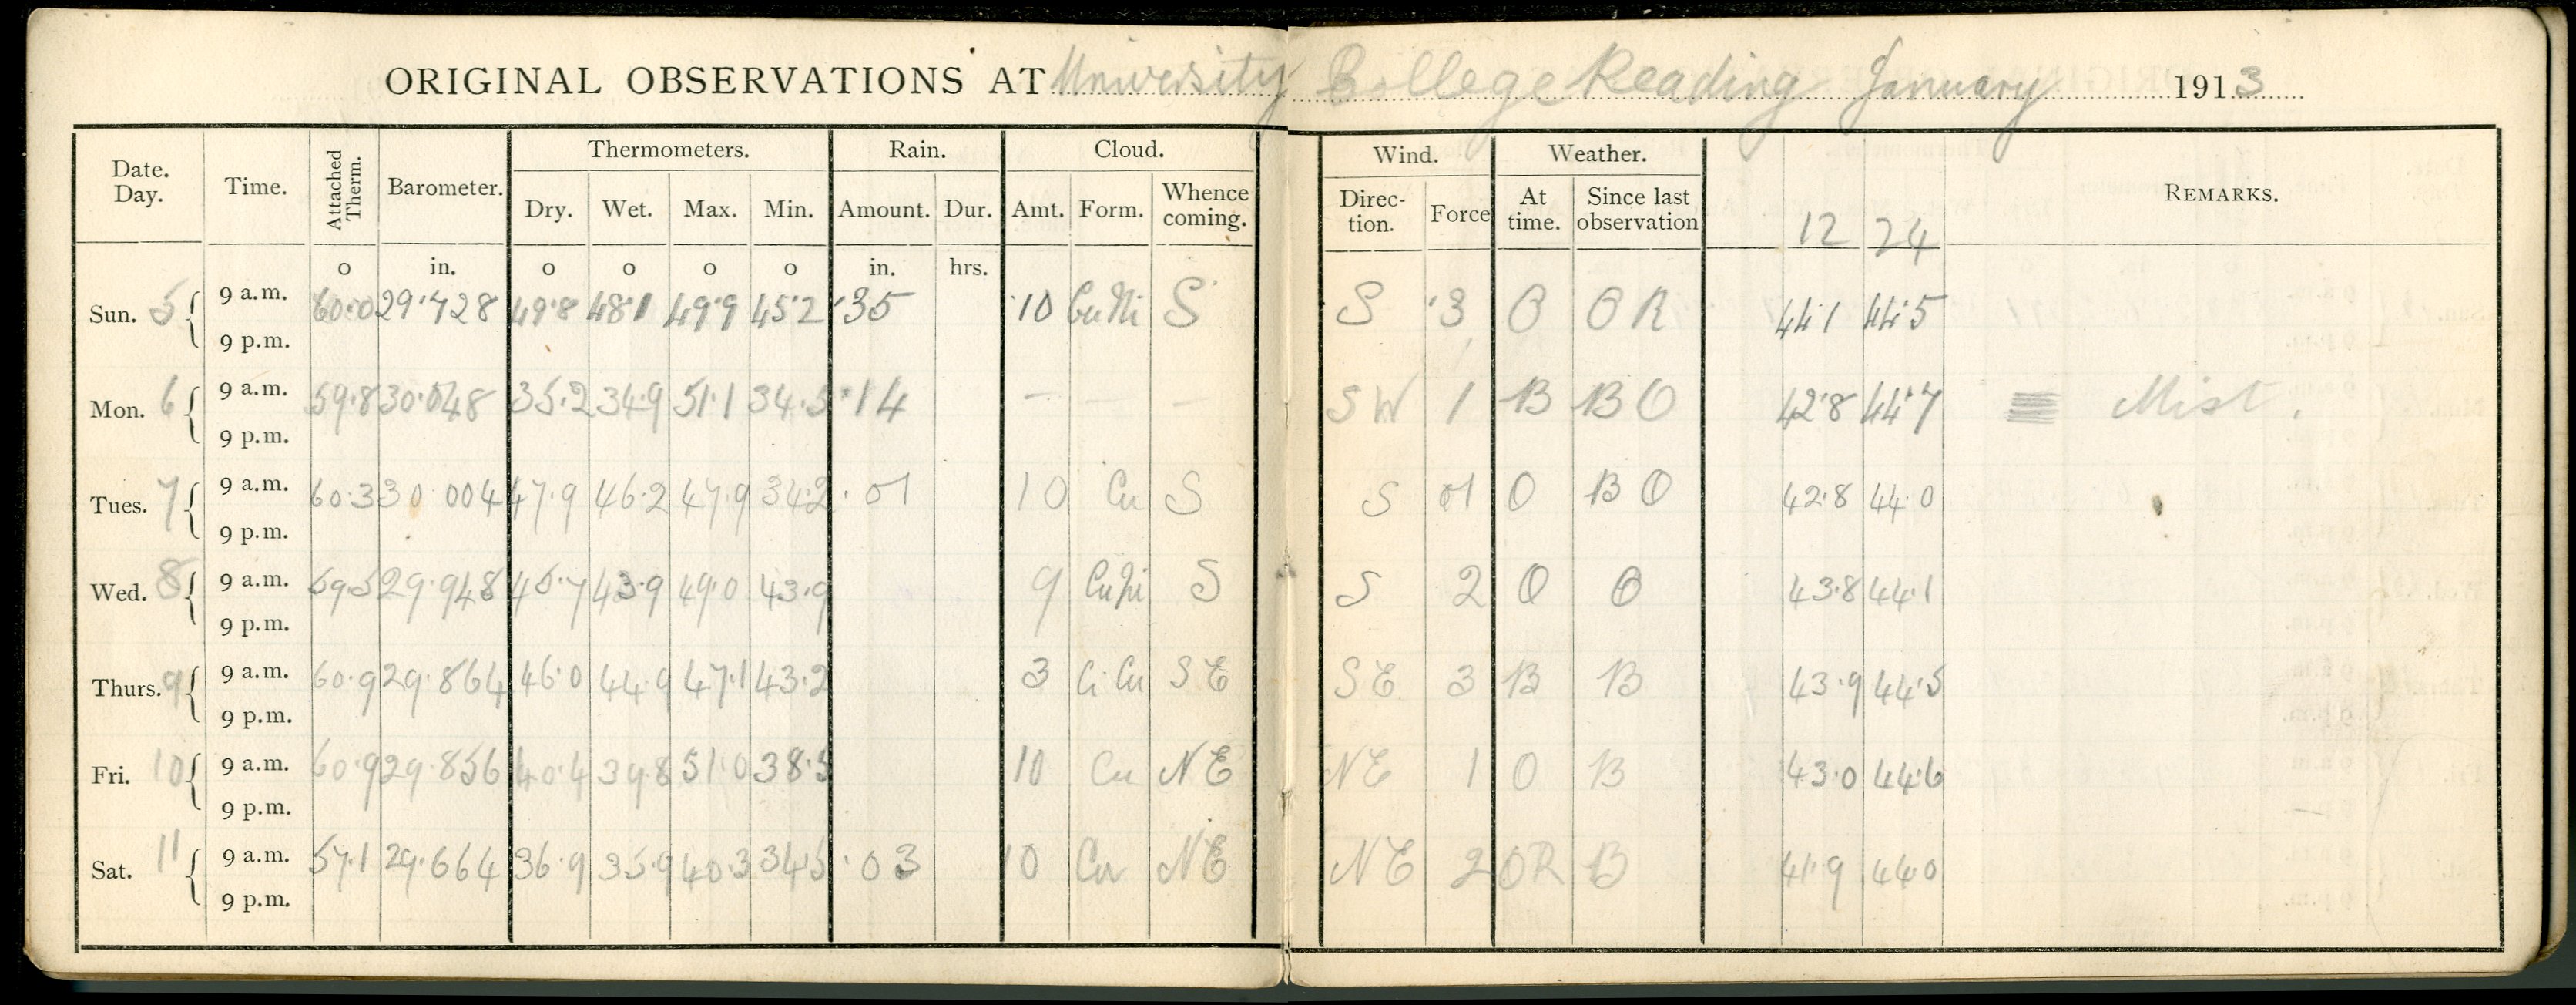 ORIGINAL OBSERVATIONS AT University College Reading January 1913
Date. Day. Time. Attached Therm. Barometer. Thermometers. Rain. Cloud. Wind. Weather. REMARKS.
Dry. Wet. Max. Min. Amount. Dur. Amt. Form. Whence coming. Direction. Force At time. Since last observation 12 24
o in. o o o o in. hrs.
Sun. 5 { 9 a.m. 60.0 29.728 49.8 48.1 49.9 45.2 .35 10 CuNi S S 3 O O R 44.1 44.5
9 p.m.
Mon. 6 { 9 a.m. 59.8 30.048 35.2 34.9 51.1 34.5 .14 — — — SW 1 B B O 42.8 44.7 ≡ Mist.
9 p.m.
Tues. 7 { 9 a.m. 60.3 30.004 47.9 46.2 47.9 34.2 .01 10 Cu S S 01 O B O 42.8 44.0
9 p.m.
Wed. 8 { 9 a.m. 59.5 29.948 45.7 43.9 49.0 43.9 9 CuNi S S 2 O O 43.8 44.1
9 p.m.
Thurs. 9 { 9 a.m. 60.9 29.864 46.0 44.9 47.1 43.2 3 Ci Cu SE SE 3 B B 43.9 44.5
9 p.m.
Fri. 10 { 9 a.m. 60.9 29.856 40.4 39.8 51.0 38.5 10 Cu NE NE 1 O B 43.0 44.6
9 p.m.
Sat. 11 { 9 a.m. 57.1 29.664 36.9 35.9 40.3 34.5 .03 10 Cu NE NE 2 OR B 41.9 44.0
9 p.m.